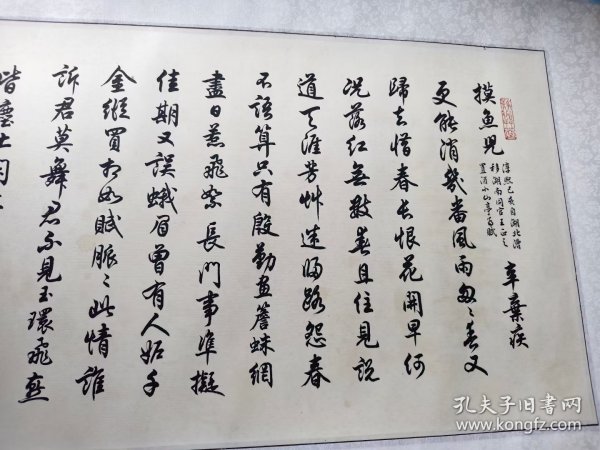 摸魚兒
淳熙己亥自湖北漕
移湖南同官王正之
置酒小山亭為賦
辛棄疾
更能消幾番風雨匆〻春又
歸去惜春長恨花開早何
況落紅無數春且住見說
道天涯芳艸迷歸路怨春
不語算只有殷勤畫簷蛛網
盡日惹飛絮長門事準擬
佳期又誤蛾眉曾有人妬千
金縱買相如賦脈〻此情誰
訴君莫舞君不見玉環飛燕
皆塵土閑
孔夫子旧书网
www.kongfz.com